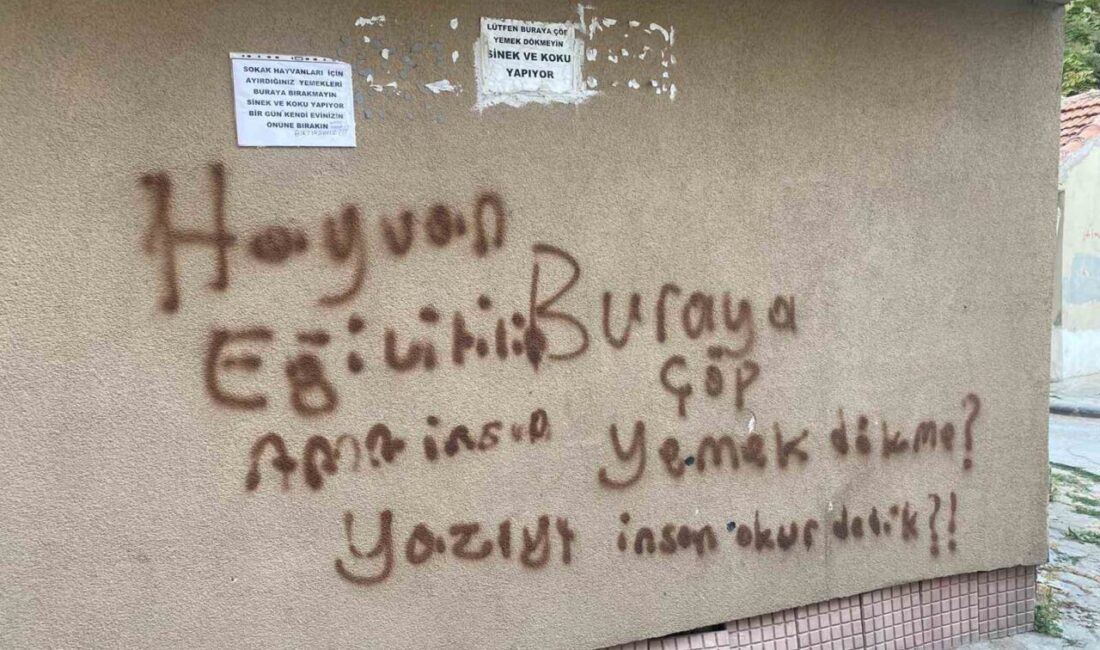 SOKAK HAYVANLARI İÇİN
AYIRDIĞINIZ YEMEKLERİ
BURAYA BIRAKMAYIN
SİNEK VE KOKU YAPIYOR
BİR GÜN KENDİ EVİNİZİN
ÖNÜNE BIRAKIN
LÜTFEN BURAYA ÇÖP
YEMEK DÖKMEYİN
SİNEK VE KOKU
YAPIYOR
Hayvan
Eğilitilir
Ama insan
Buraya
Çöp
Yemek dökme?
Yazıyı insan okur dedik?!